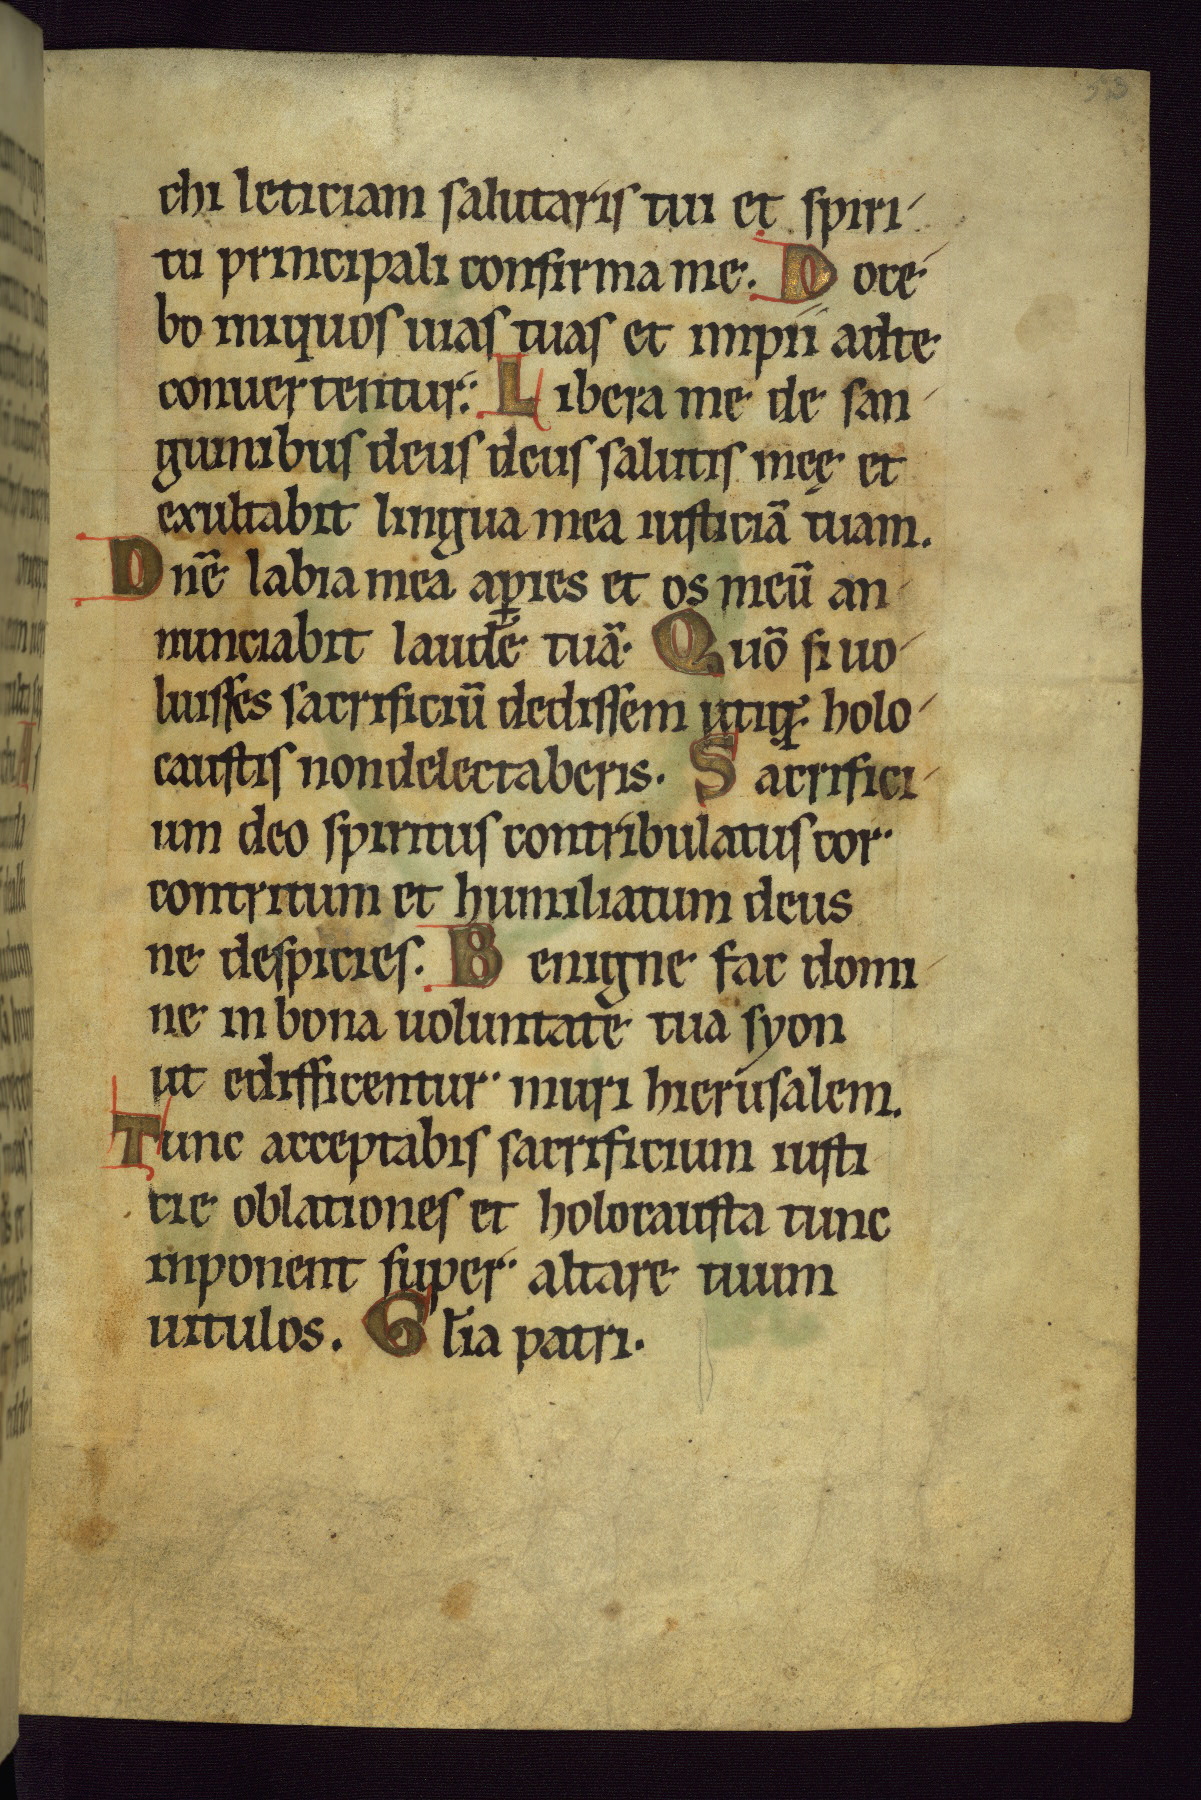 chi leticiam salutaris tui et spiri
tu principali confirma me. Doce
bo iniquos uias tuas et impii adte
conuertentur. Libera me de san
guinibus deus deus salutis meę et
exultabit lingua mea iusticiā tuam.
Dn̄e labia mea ap̲ies et os meū an
nunciabit laudē tuā. Quō si uo
luisses sacrificiū dedissem utiqꝫ holo
caustis nondelectaberis. Sacrifici
um deo spiritus contribulatus cor
contritum et humiliatum deus
ne despicies. Benigne fac domi
ne in bona uoluntate tua syon
ut edifficentur muri hierusalem.
Tunc acceptabis sacrificium iusti
cie oblationes et holocausta tunc
inponent super altare tuum
uitulos. Gl̄ia patri.